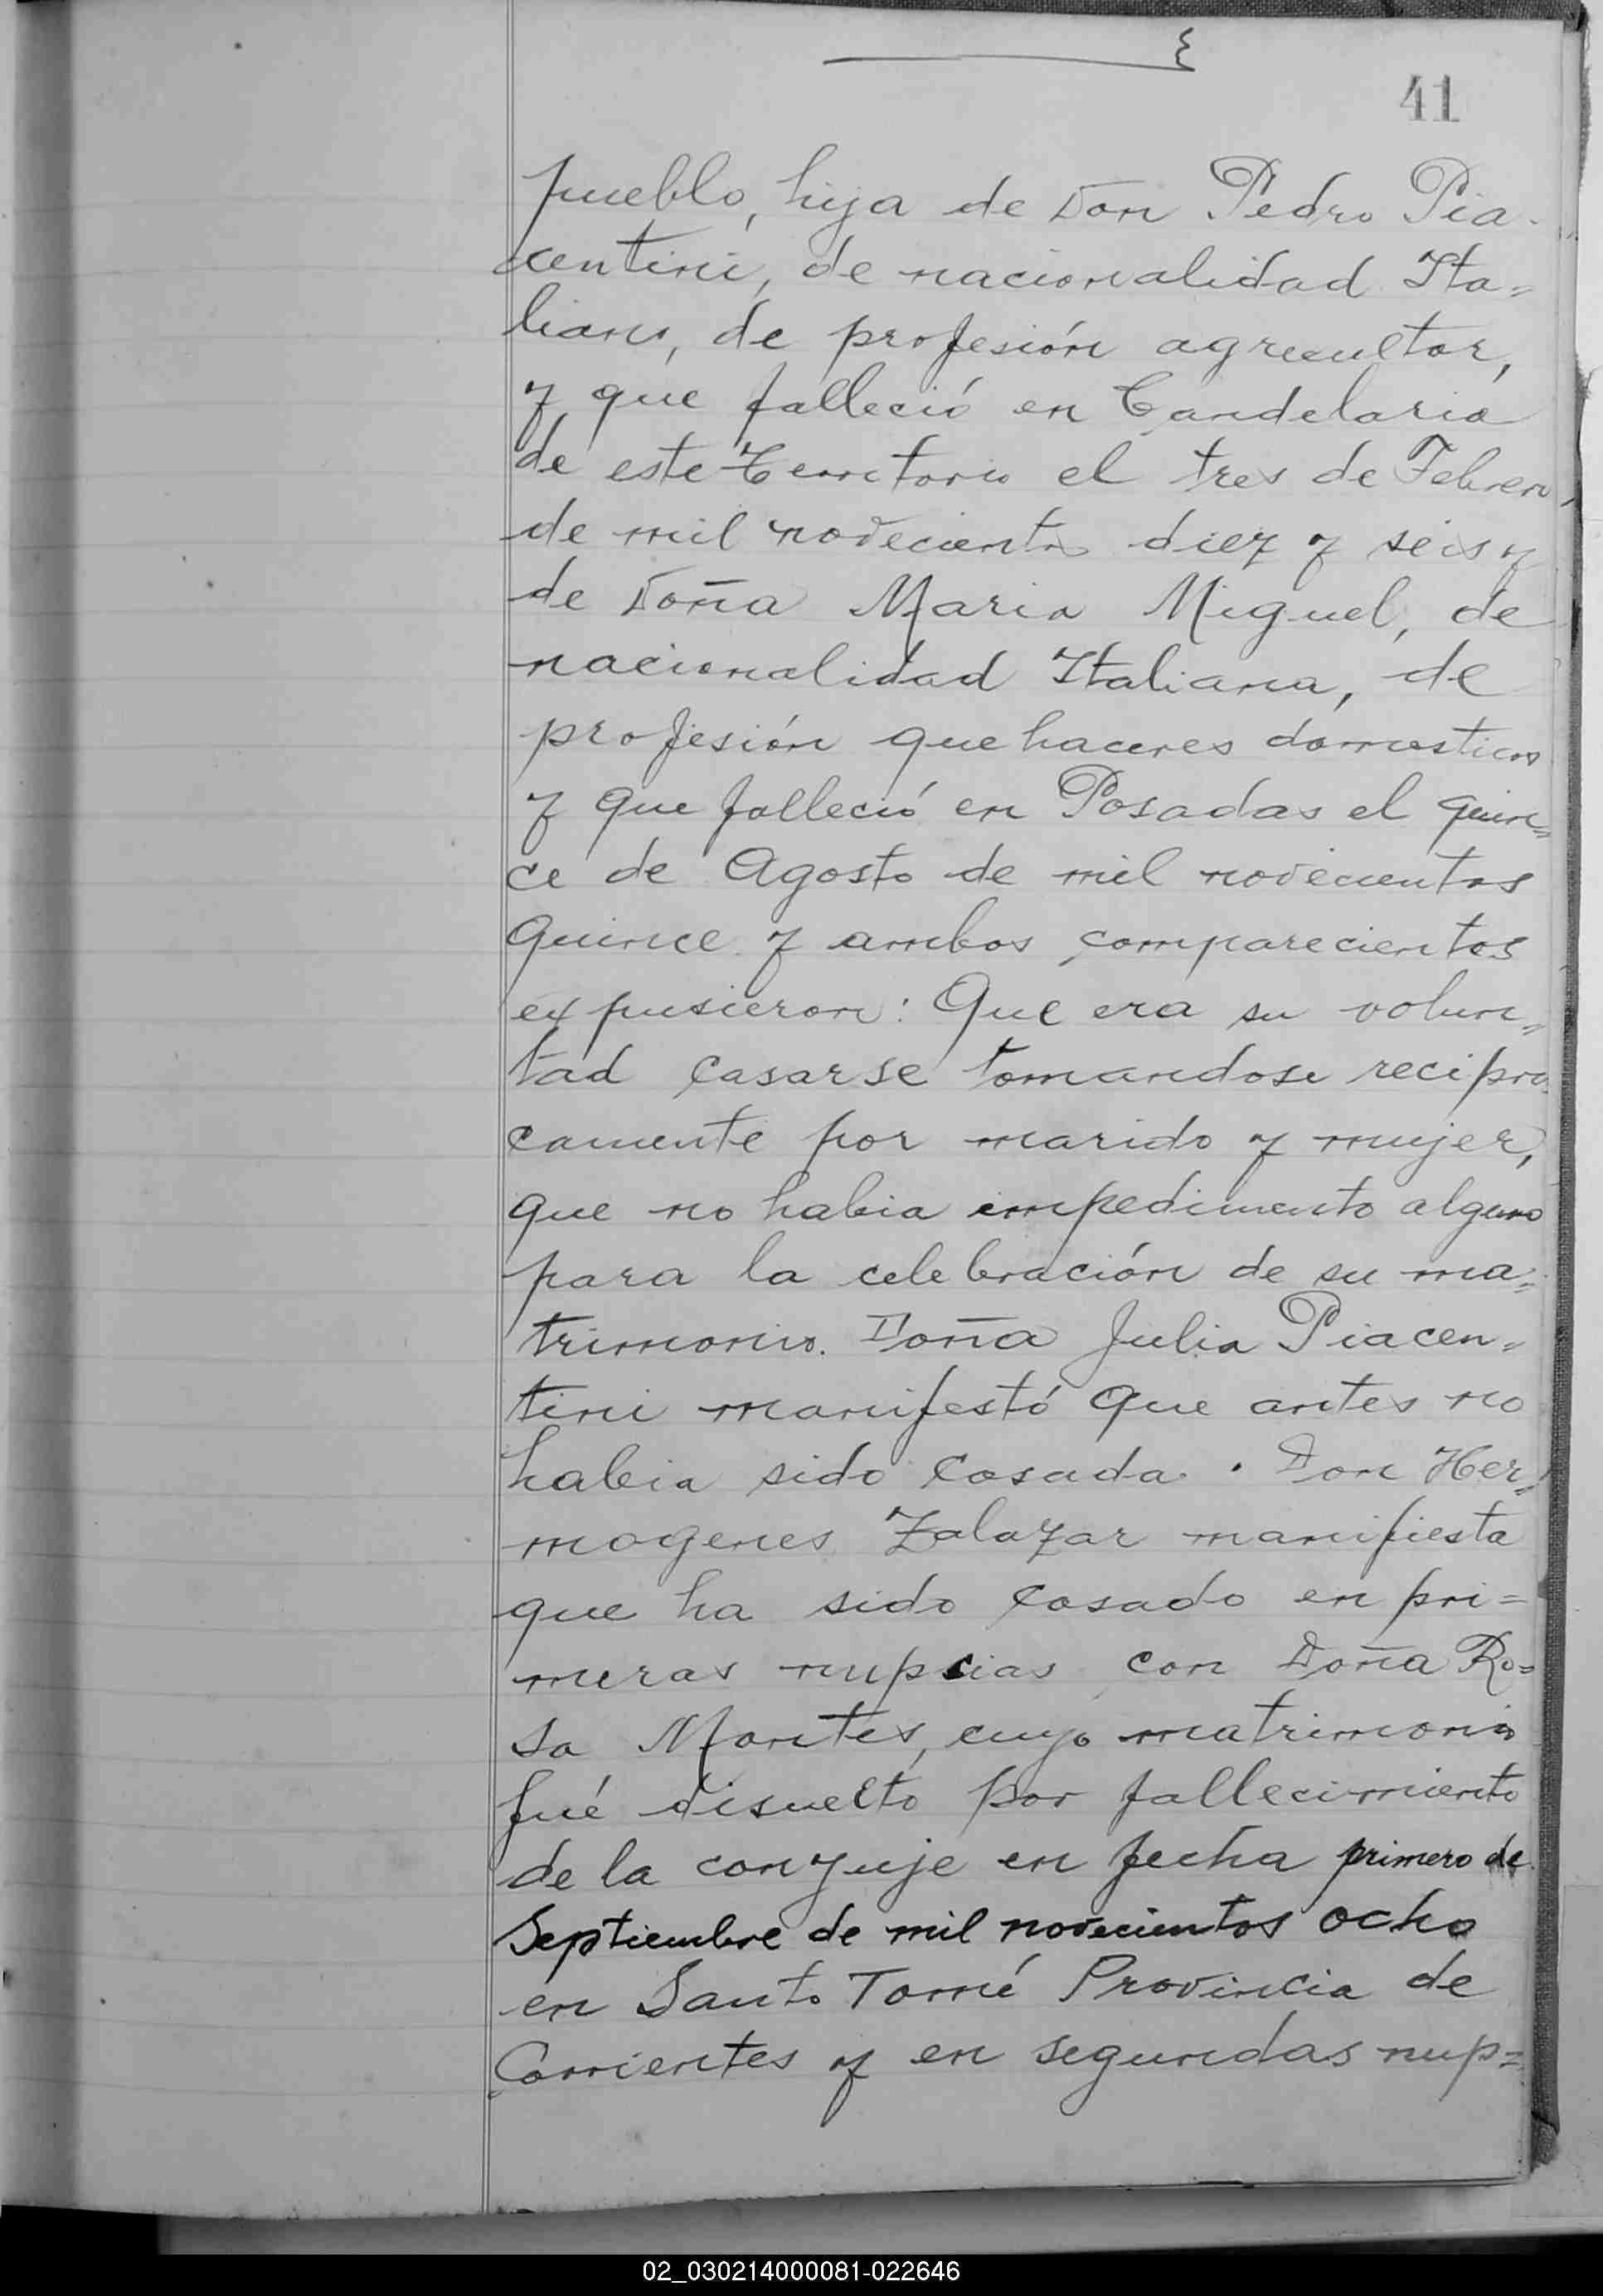 41
pueblo, hija de Don Pedro Pia-
centini, de nacionalidad Ita=
liano, de profesión agricultor,
y que falleció en Candelaria
de este Territorio el tres de Febrero
de mil novecientos diez y seis y
de Doña Maria Miguel, de
nacionalidad Italiana, de
profesión que haceres domesticos
y que falleció en Posadas el quin=
ce de Agosto de mil novecientos
quince y ambos comparecientos
expusieron: Que era su volun=
tad casarse tomandose recipro
camente por marido y mujer,
que no habia impedimento alguno
para la celebración de su ma=
trimonio. Doña Julia Piacen=
tini manifestó que antes no
habia sido casada. Don Her=
mogenes Zalazar manifiesta
que ha sido casado en pri=
meras nupcias con Doña Ro=
sa Montes, cuyo matrimonio
fué disuelto por fallecimiento
de la conyuje en fecha primero de
Septiembre de mil novecientos ocho
en Santo Tomé Provincia de
Corrientes y en segundas nup=
02_030214000081-022646